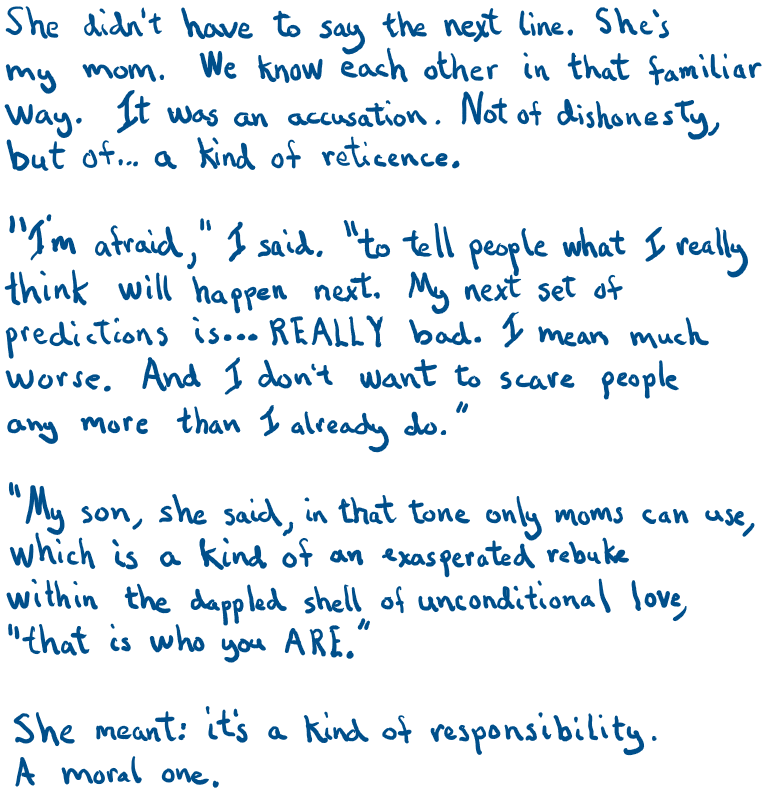 She didn't have to say the next line. She's
my mom. We know each other in that familiar
way. It was an accusation. Not of dishonesty,
but of... a kind of reticence.
"I'm afraid," I said. "to tell people what I really
think will happen next. My next set of
predictions is... REALLY bad. I mean much
worse. And I don't want to scare people
any more than I already do."
"My son, she said, in that tone only moms can use,
which is a kind of an exasperated rebuke
within the dappled shell of unconditional love,
"that is who you ARE."
She meant: it's a kind of responsibility.
A moral one.